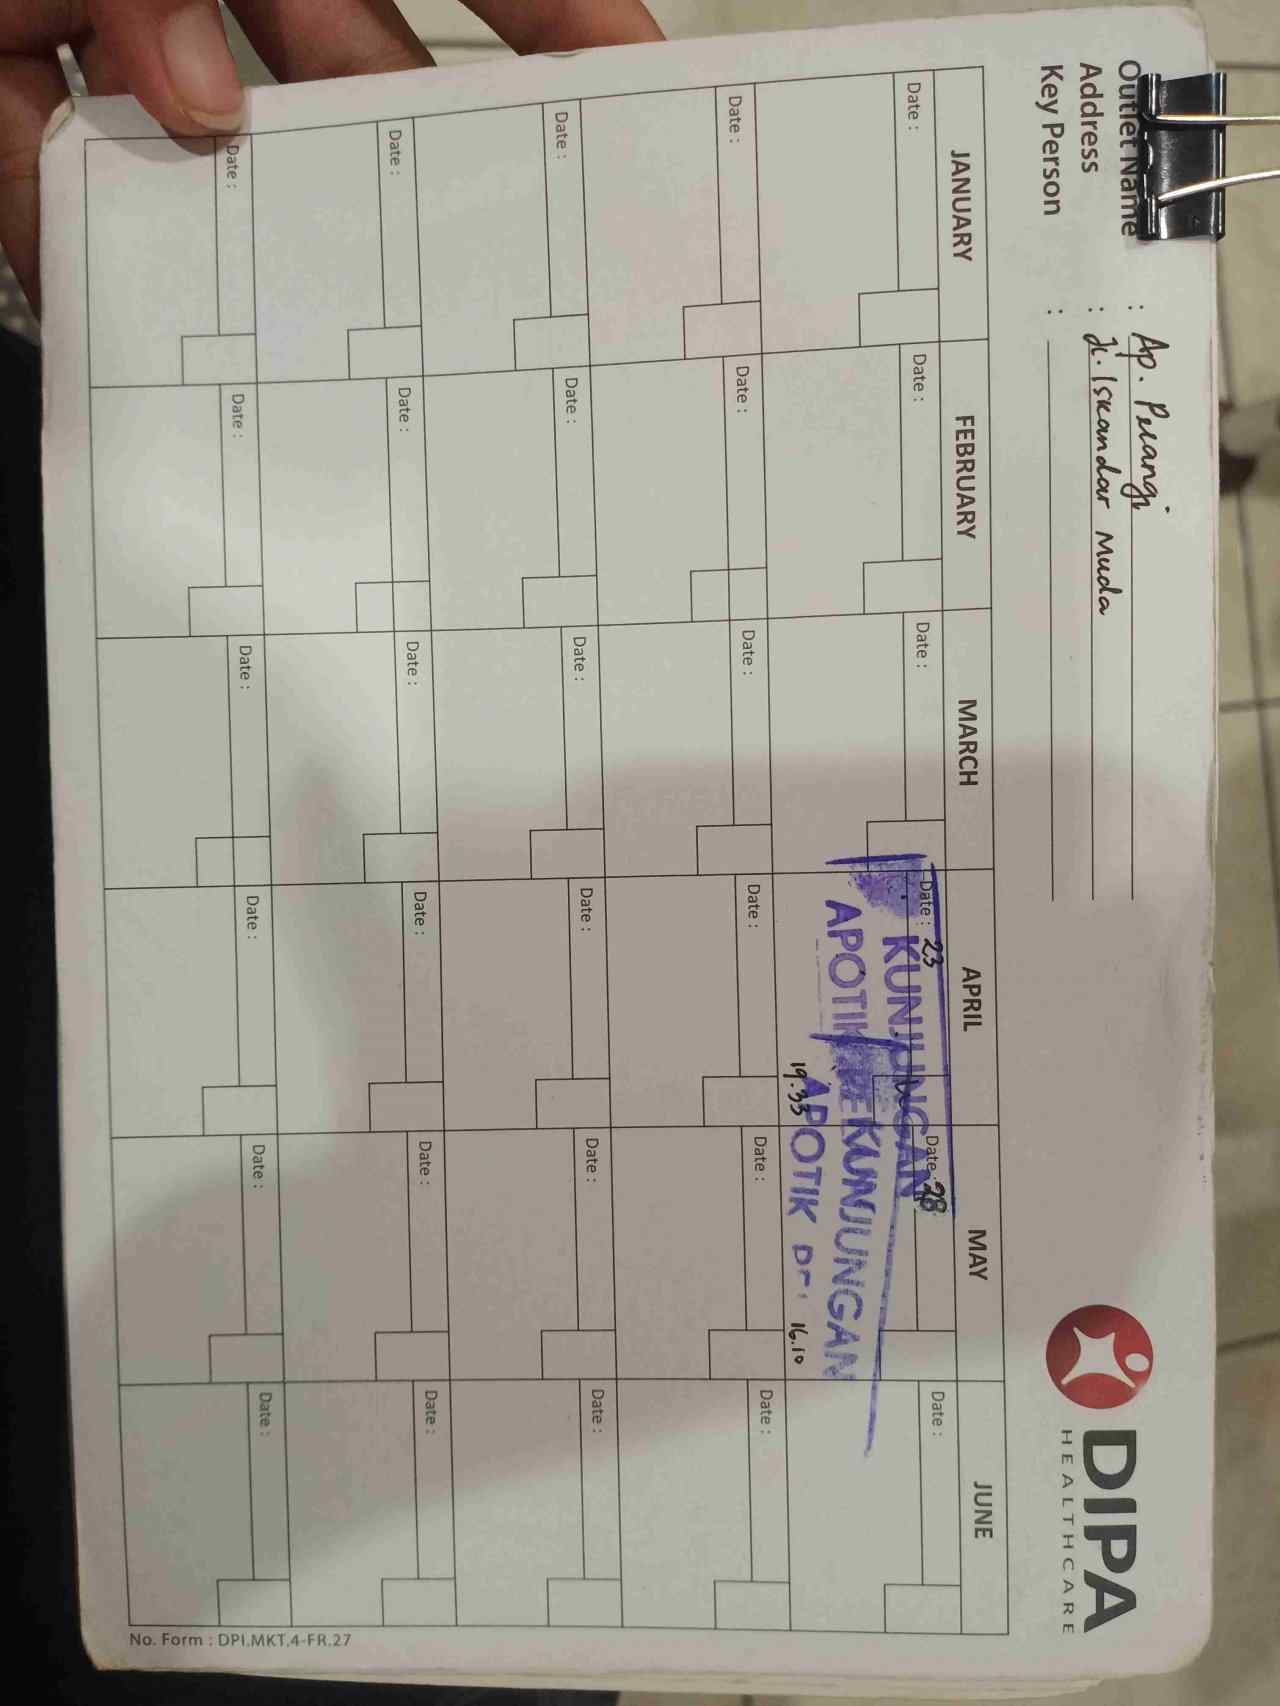 Outlet Name : Ap. Pelangi
Address : Jl. Iskandar Muda
Key Person :
DIPA
HEALTHCARE
JANUARY FEBRUARY MARCH APRIL MAY JUNE
Date : Date : Date : Date : 23 Date : 28 Date :
KUNJUNGAN
APOTIK
KUNJUNGAN
APOTIK
19.33 16.10
Date : Date : Date : Date : Date : Date :
Date : Date : Date : Date : Date : Date :
Date : Date : Date : Date : Date : Date :
Date : Date : Date : Date : Date : Date :
No. Form : DPI.MKT.4-FR.27